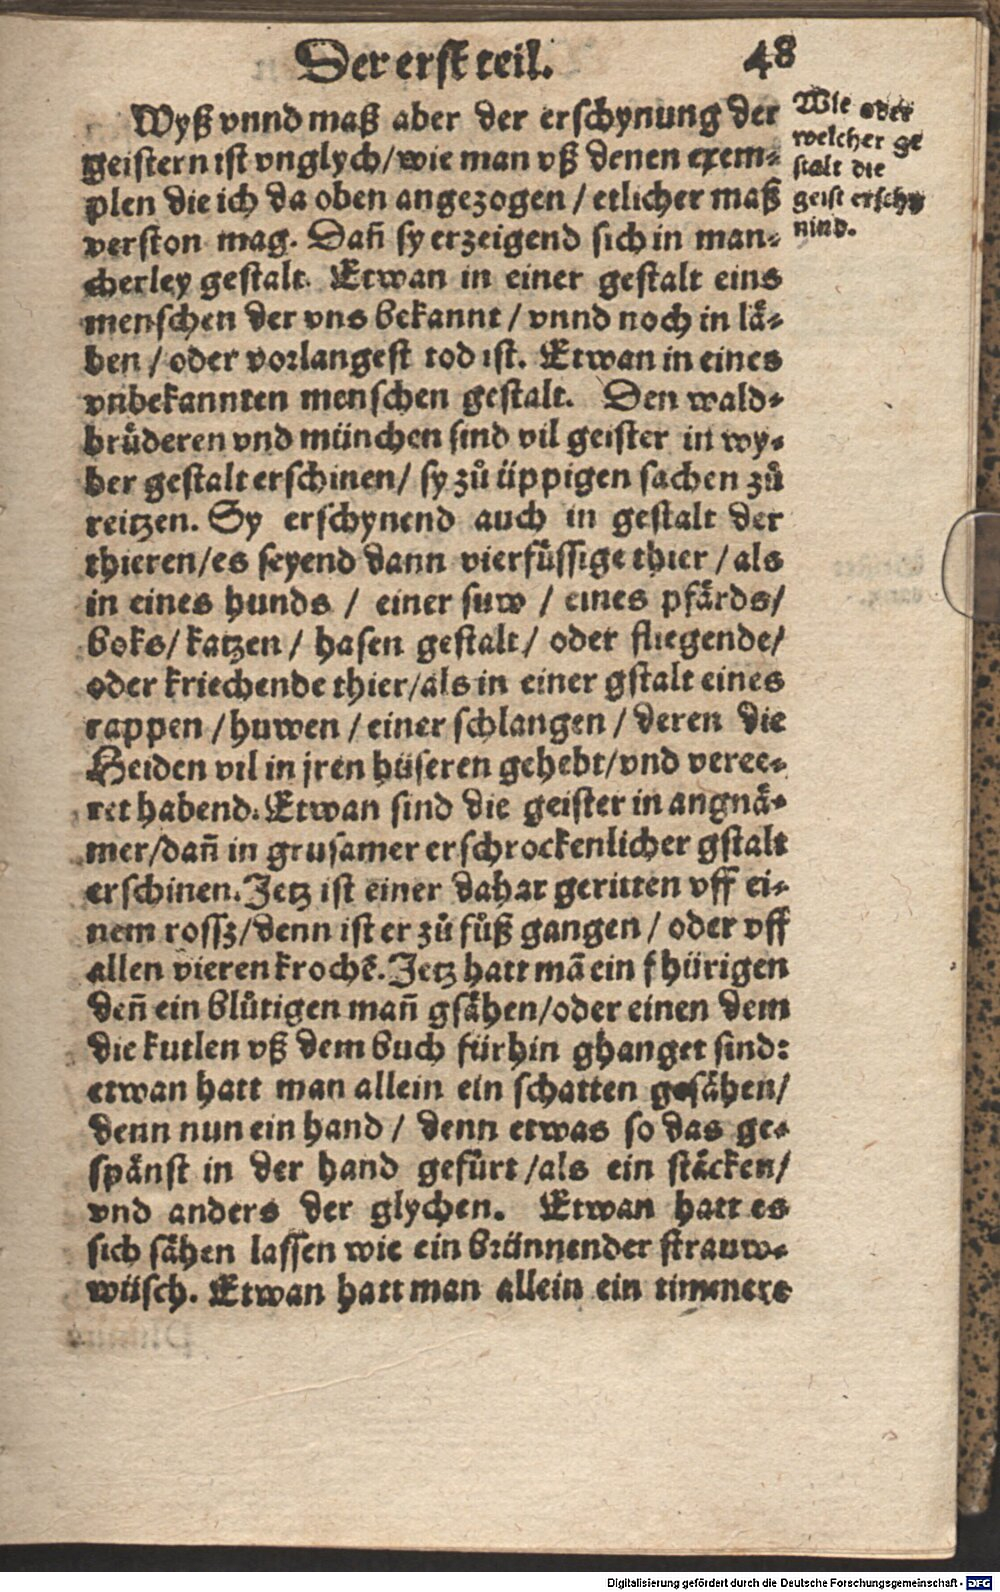 Der erst teil. 48
Wyß vnnd maß aber der erschynung der
geistern ist vnglych/wie man vß denen exem-
plen die ich da oben angezogen / etlicher maß
verston mag. Dañ sy erzeigend sich in man-
cherley gestalt. Etwan in einer gestalt eins
menschen der vns bekannt / vnnd noch in lä-
ben / oder vorlangest tod ist. Etwan in eines
vnbekannten menschen gestalt. Den wald-
brůderen vnd münchen sind vil geister in wy-
ber gestalt erschinen/ sy zů üppigen sachen zů
reitzen. Sy erschynend auch in gestalt der
thieren/es seyend dann vierfüssige thier / als
in eines hunds / einer suw / eines pfärds/
boks/ katzen / hasen gestalt / oder fliegende/
oder kriechende thier/als in einer gstalt eines
rappen / huwen / einer schlangen / deren die
Heiden vil in jren hüseren gehebt/vnd veree-
ret habend. Etwan sind die geister in angnä-
mer/dañ in grusamer erschrockenlicher gstalt
erschinen. Jetz ist einer dahar geritten vff ei-
nem rossz/denn ist er zů fůß gangen / oder vff
allen vieren krochẽ. Jetz hatt mã ein fhürigen
deñ ein blůtigen mañ gsähen/oder einen dem
die kutlen vß dem buch fürhin ghanget sind:
etwan hatt man allein ein schatten gesähen/
denn nun ein hand / denn etwas so das ge-
spänst in der hand gefürt /als ein stäcken/
vnd anders der glychen. Etwan hatt es
sich sähen lassen wie ein brünnender strauw-
wüsch. Etwan hatt man allein ein timmere
Wie oder
welcher ge
stalt die
geist erschy
nind.
Digitalisierung gefördert durch die Deutsche Forschungsgemeinschaft - DFG